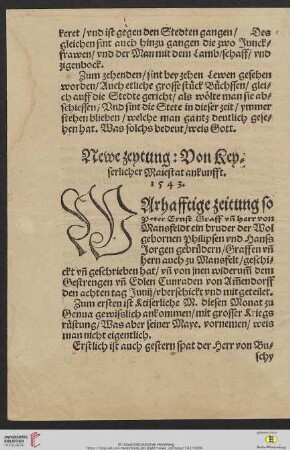 keret / vnd ist gegen den Stedten gangen / Des
gleichen sint auch hinzu gangen die zwo Junck-
frawen / vnd der Man mit dem Lamb / schaff / vnd
zigenbock.
Zum zehenden / sint bey zehen Lewen gesehen
worden / Auch etliche grosse stück Büchssen / glei-
ch auff die Stedte gericht / als wölte man sie ab-
schiessen / Vnd sint die Stete in dieser zeit / ymmer
stehen blieben / welche man gantz deutlich gese-
hen hat. Was solchs bedeut / weis Gott.
Newe zeytung: Von Key-
serlicher Maiestat ankunfft.
1543.
WArhafftige zeitung so
Peter Ernst Graff vñ herr von
Mansfeldt ein bruder der Wol
gebornen Philipsen vnd Hanß
Jorgen gebrüdern / Graffen vñ
hern auch zu Mansfelt / geschi-
ckt vñ geschrieben hat / vñ von jnen widerum̃ dem
Gestrengen vñ Edlen Cunraden von Am̃endorff
den achten tag Junij / vberschickt vnd mit geteilet.
Zum ersten ist Keiserliche M. diesen Monat zu
Genua gewißlich ankommen / mit grosser Kriegs
rüstung / Was aber seiner Maye. vornemen / weis
man nicht eigentlich.
Erstlich ist auch gestern spat der Herr von Bu-
schy
UNIVERSITÄTS-
BIBLIOTHEK
HEIDELBERG
© Universitätsbibliothek Heidelberg